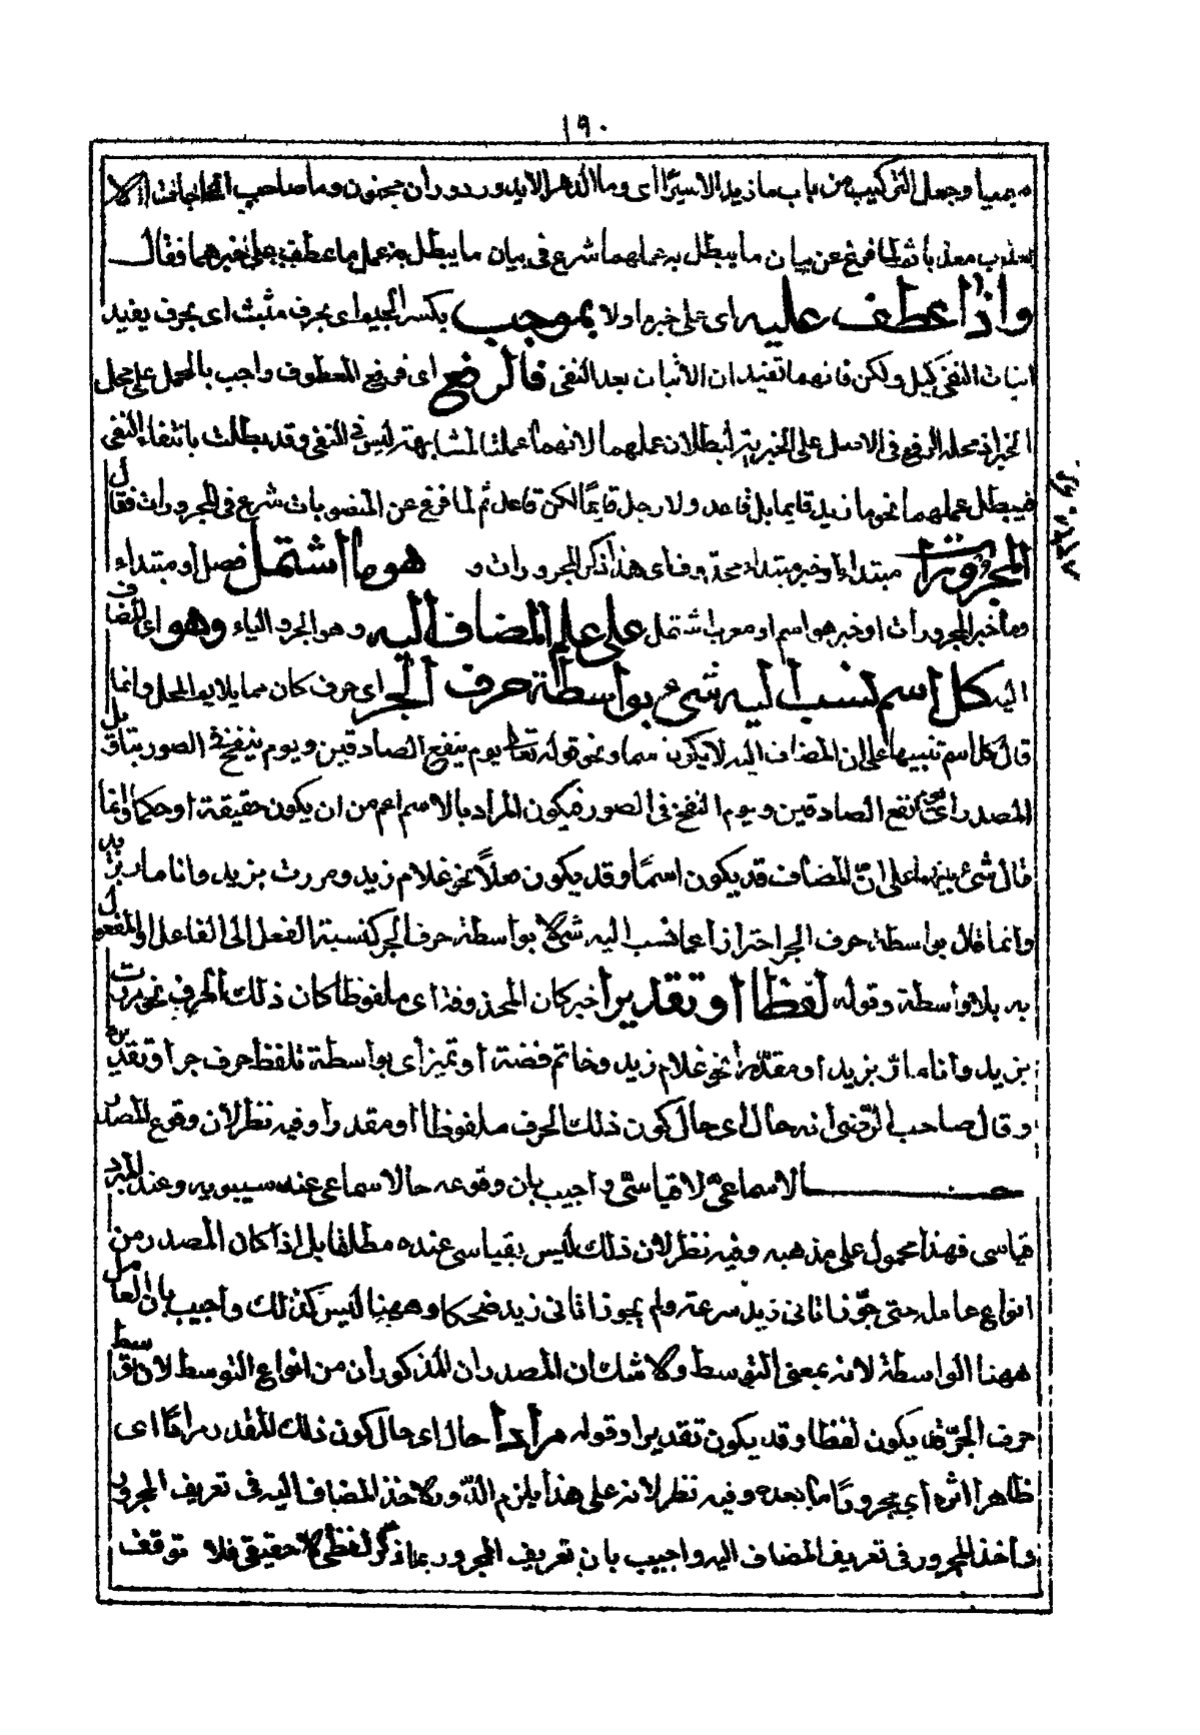 ١٩٠
وجعل التركيب من باب ما زيد الا سيرا اى وما الدهر الا يدور دوران مجنون وما صاحب الحاجات الا
يعذب معذبا ثم لما فرغ عن بيان ما يبطل به عملهما شرع فى بيان ما يبطل به عمل ما عطف على خبرهما فقال
واذا عطف عليه اى على خبر ما ولا بموجب بكسر الجيم اى بحرف مثبت اى بحرف يفيد
اثبات النفى كبل ولكن فانهما تفيدان الاثبات بعد النفى فالرفع اى فرفع المعطوف واجب بالحمل على محل
الخبر اذ محله الرفع فى الاصل على الخبرية لبطلان عملهما لانهما عملتا لمشابهة ليس فى النفى وقد بطلت بانتفاء النفى
فيبطل عملهما نحو ما زيد قايما بل قاعد ولا رجل قايما لكن قاعد ثم لما فرغ عن المنصوبات شرع فى المجرورات فقال
المجرورات مبتداء وخبر مبتداء محذوف اى هذا ذكر المجرورات و هو ما اشتمل فصل او مبتداء
وما خبر المجرورات او خبر هو اسم او معرب اشتمل على علم المضاف اليه وهو الجر والياء وهو اى المضاف
اليه كل اسم نسب اليه شئ بواسطة حرف الجر اى حرف كان مما يلايم المحل وانما
قال كل اسم تنبيها على ان المضاف اليه لا يكون سما ونحو قوله تعالى يوم ينفع الصادقين ويوم ينفخ فى الصور بتاويل
المصدر اى يوم نفع الصادقين ويوم النفخ فى الصور فيكون المراد بالاسم اعم من ان يكون حقيقة او حكما وانما
قال شئ تنبيها على ان المضاف قد يكون اسما وقد يكون فعلا نحو غلام زيد ومررت بزيد وانا مار بزيد
وانما قال بواسطة حرف الجر احترازا عما نسب اليه شئ لا بواسطة حرف الجر كنسبة الفعل الى الفاعل او المفعول
به بلا واسطة وقوله لفظا او تقديرا خبر كان المحذوفة اى ملفوظا كان ذلك الحرف نحو مررت
بزيد وانا مار بزيد او مقدرا نحو غلام زيد وخاتم فضة او تميز اى بواسطة تلفظ حرف جر او تقديره
وقال صاحب الرضى انه حال اى حال كون ذلك الحرف ملفوظا او مقدرا وفيه نظر لان وقوع المصدر
حالا سماعى لا قياسى واجيب بان وقوعه حالا سماعى عند سيبويه وعند المبرد
قياسى فهذا محمول على مذهبه وفيه نظر لان ذلك ليس بقياسى عنده مطلقا بل اذا كان المصدر من
انواع عامله حتى جوز اتانى زيد سرعة ولم يجوز اتانى زيد ضحكا وههنا ليس كذلك واجيب بان العامل
ههنا الواسطة لانه بمعنى التوسط ولا شك ان المصدران المذكوران من انواع التوسط لان توسط
حرف الجر قد يكون لفظا وقد يكون تقديرا وقوله مرادا حال اى حال كون ذلك المقدر مرادا اى
ظاهرا اثره اى مجرورا ما بعده وفيه نظر لانه على هذا يلزم الدور لاخذ المضاف اليه فى تعريف المجرور
واخذ المجرور فى تعريف المضاف اليه واجيب بان تعريف المجرور بما ذكر لفظى لا حقيقى فلا توقف